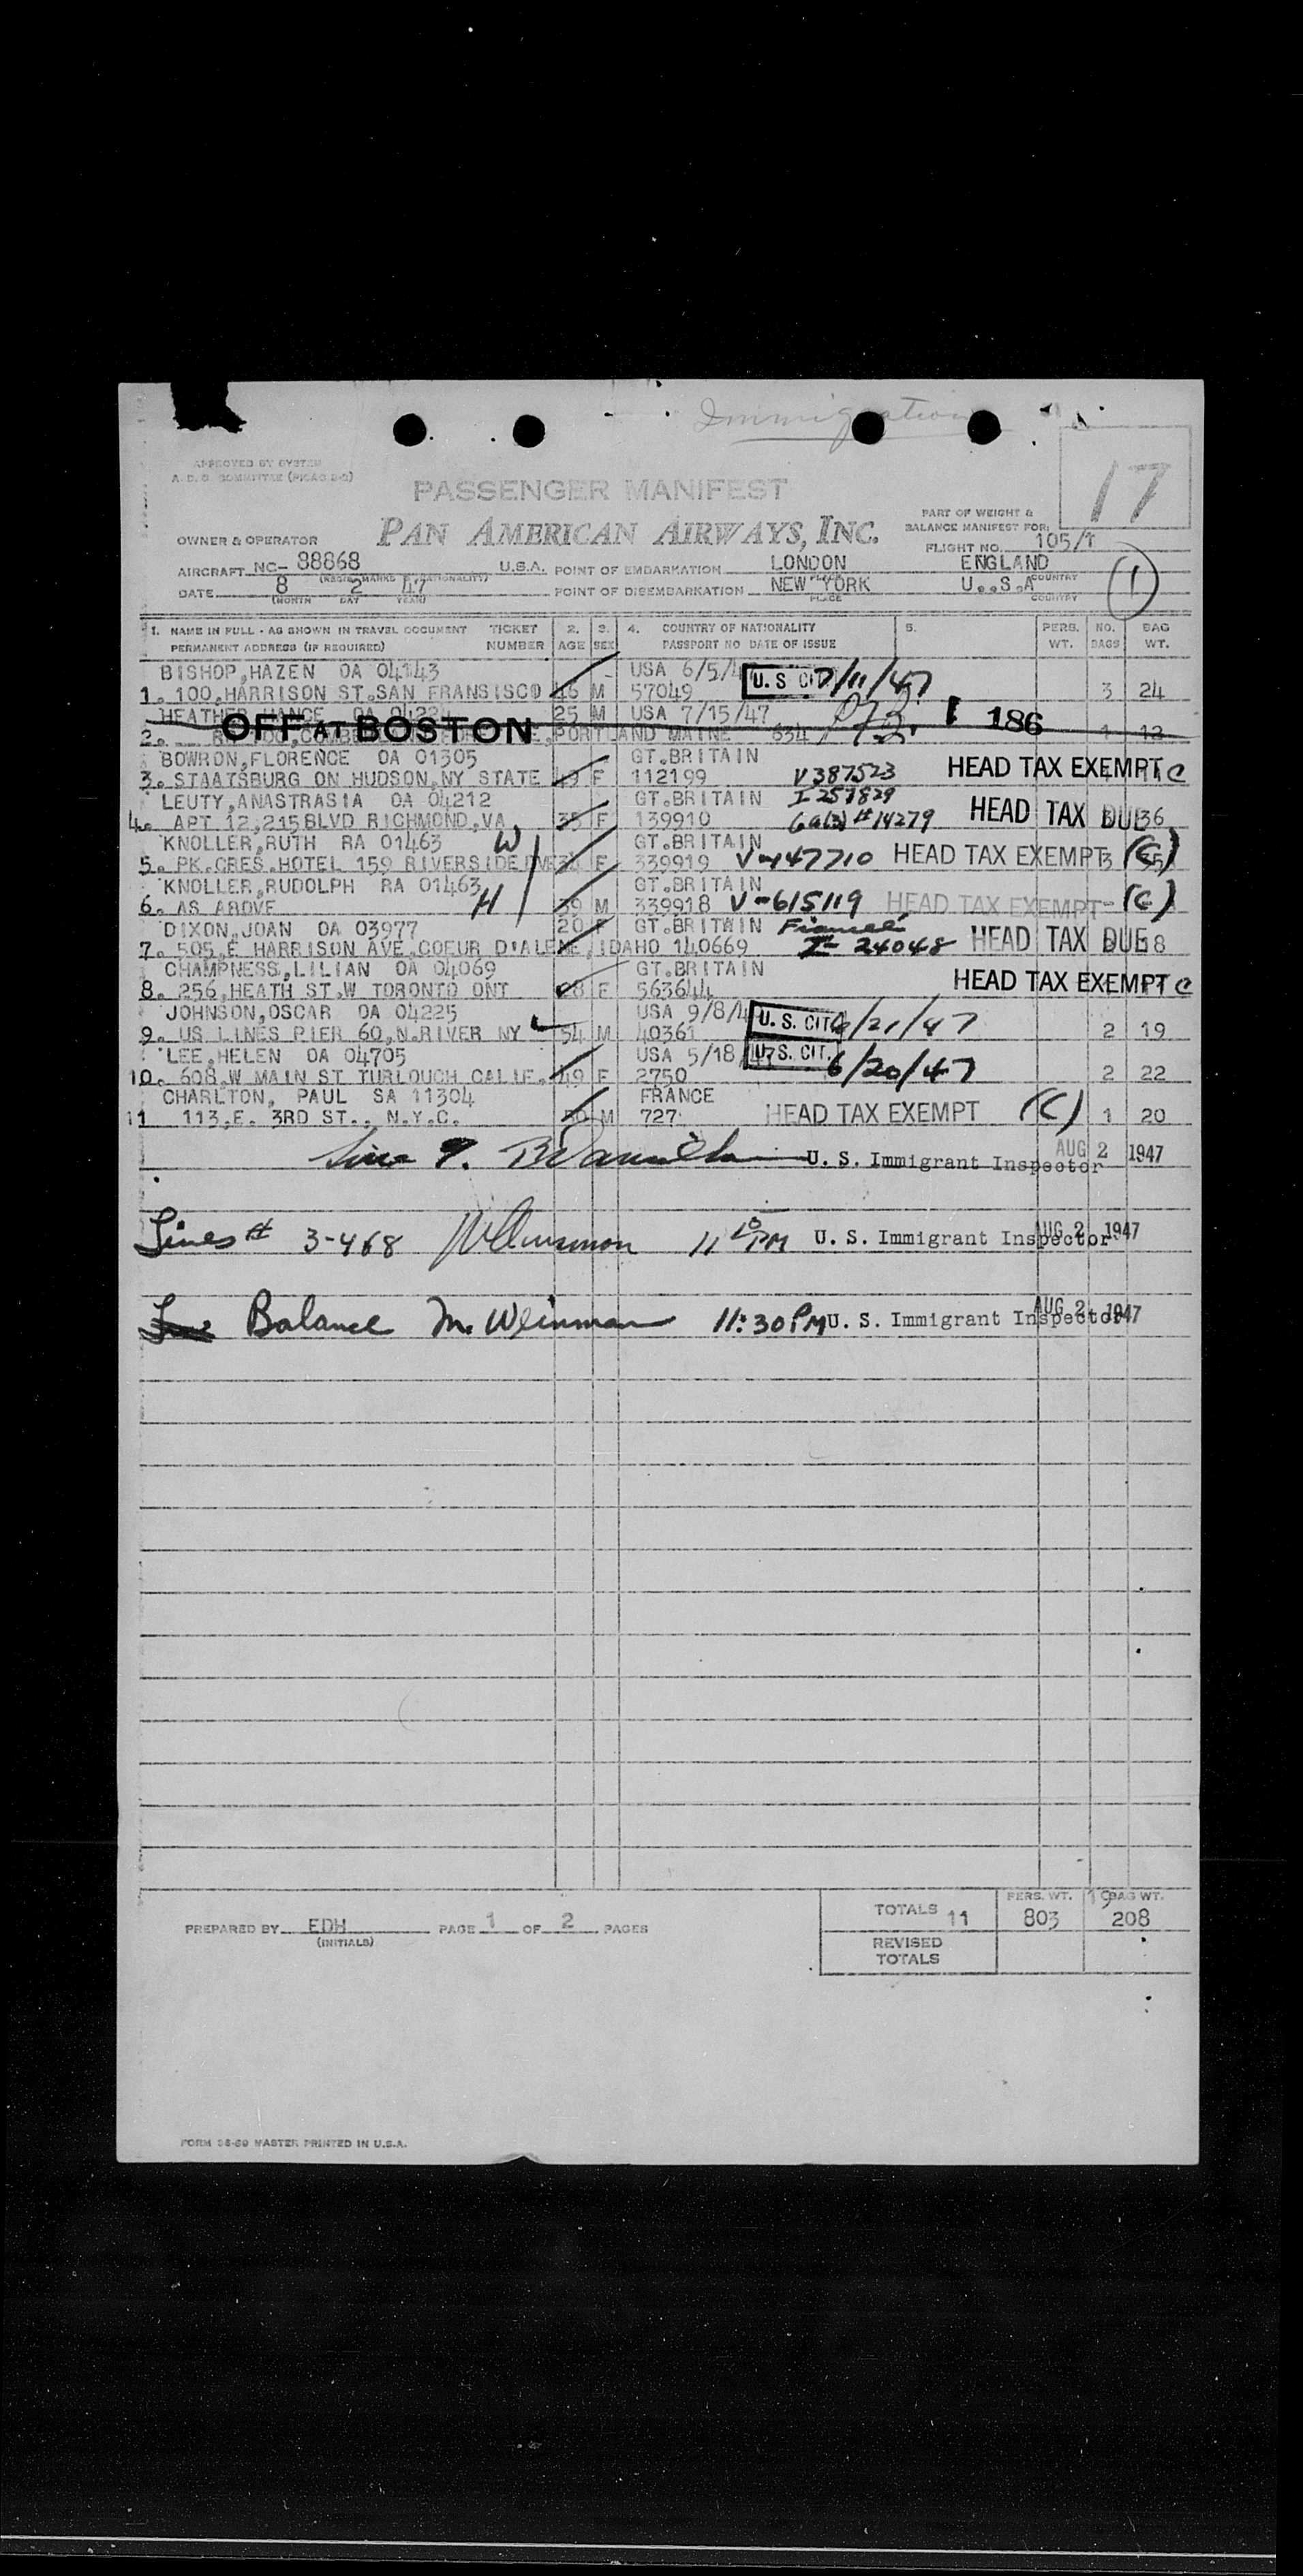 Immigration
APPROVED BY SYSTEM
A.D.C. COMMITTEE (PICAO
17
PASSENGER MANIFEST
PAN AMERICAN AIRWAYS, INC.
PART OF WEIGHT &
BALANCE MANIFEST FOR:
OWNER & OPERATOR
FLIGHT NO. 105/1
AIRCRAFT NC- 88868 U.S.A. POINT OF EMBARKATION LONDON ENGLAND
DATE 8 2 47 POINT OF DISEMBARKATION NEW YORK U..S.A COUNTRY
(MONTH DAY YEAR) PLACE COUNTRY
1
1. NAME IN FULL - AS SHOWN IN TRAVEL DOCUMENT TICKET 2. 3. 4. COUNTRY OF NATIONALITY 5. PERS. NO. BAG
PERMANENT ADDRESS (IF REQUIRED) NUMBER AGE SEX PASSPORT NO DATE OF ISSUE WT. BAGS WT.
BISHOP,HAZEN OA 04143 USA 6/5/4
1. 100,HARRISON ST.SAN FRANSISCO 46 M 57049 U. S CIT 7/11/47 3 24
HEATHER, HANCE OA 0422 25 M USA 7/15/47
OFF AT BOSTON 186
2. PORTLAND MAINE 634 1 12
BOWRON,FLORENCE OA 01305 GT.BRITAIN
3. STAATSBURG ON HUDSON,NY STATE 49 F 112199 V387523 HEAD TAX EXEMPT C
LEUTY,ANASTRASIA OA 04212 GT.BRITAIN I-257829
4. APT 12,215BLVD RICHMOND,VA 35 F 139910 6a(3) #14279 HEAD TAX DUE 36
KNOLLER,RUTH RA 01463 W GT.BRITAIN
5. PK.CRES.HOTEL 159 RIVERSIDE F 339919 V-447710 HEAD TAX EXEMPT 3 (C)
KNOLLER,RUDOLPH RA 01463 H GT.BRITAIN
6. AS ABOVE 39 M 339918 V-615119 HEAD TAX EXEMPT- (C)
DIXON,JOAN OA 03977 20 F GT.BRITWIN Fianceé
7. 505,E HARRISON AVE,COEUR D'ALENE,IDAHO 140669 I- 24048 HEAD TAX DUE 8
CHAMPNESS,LILIAN OA 04069 GT.BRITAIN
8. 256,HEATH ST.W TORONTO ONT 28 F 563644 HEAD TAX EXEMPT C
JOHNSON,OSCAR OA 04225 USA 9/8/4
9. US LINES PIER 60,N.RIVER NY 54 M 40361 U. S. CIT. /21/47 2 19
LEE,HELEN OA 04705 USA 5/18/47
10. 608,W MAIN ST TURLOUCH CALIF. 49 F 2750 U. S. CIT. 6/20/47 2 22
CHARLTON, PAUL SA 11304 FRANCE
11 113,E. 3RD ST., N.Y.C. 30 M 727 HEAD TAX EXEMPT (C) 1 20
U. S. Immigrant Inspector AUG 2 1947
Lines # 3-4 8 11 10 PM U. S. Immigrant Inspector AUG 2 1947
Balance M. Weinman 11:30 PM U. S. Immigrant Inspector AUG 2 1947
TOTALS 11 PERS. WT. 803 19 BAG WT. 208
PREPARED BY EDH PAGE 1 OF 2 PAGES
(INITIALS)
REVISED
TOTALS
FORM 38-69 MASTER PRINTED IN U.S.A.